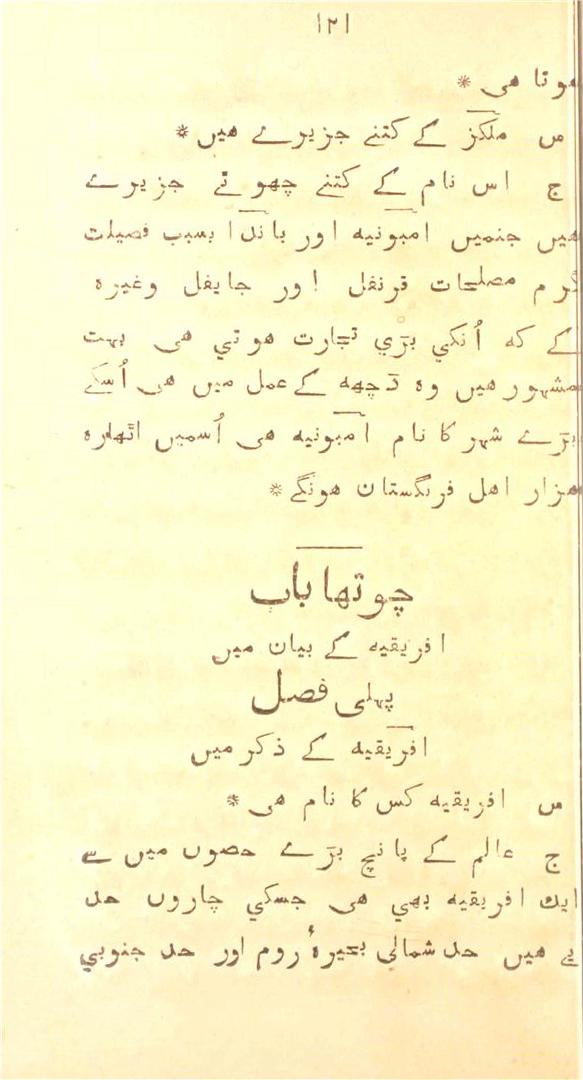 ۱۲۱
هوتا هی *
س ملکز کے کتنے جزیرے هیں *
ج اس نام کے کتنے چھوٹے جزیرے
هیں جنمیں امبونیه اور باندا بسبب فصیلت
گرم مصلحات قرنفل اور جایفل وغیره
کے که اُنکي بڑي تجارت هوتي هی بهت
مشهور هیں وه ڈچهه کے عمل میں هی اُسکے
بڑے شهر کا نام امبونیه هی اُسمیں اٹھاره
هزار اهل فرنگستان هونگے *
چوتھا باب
افریقیه کے بیان میں
پہلی فصل
افریقیه کے ذکر میں
س افریقیه کس کا نام هی *
ج عالم کے پانچ بڑے حصوں میں سے
ایك افریقیه بهي هی جسکي چاروں حد
یے هیں حد شمالی بحیرهٔ روم اور حد جنوبي